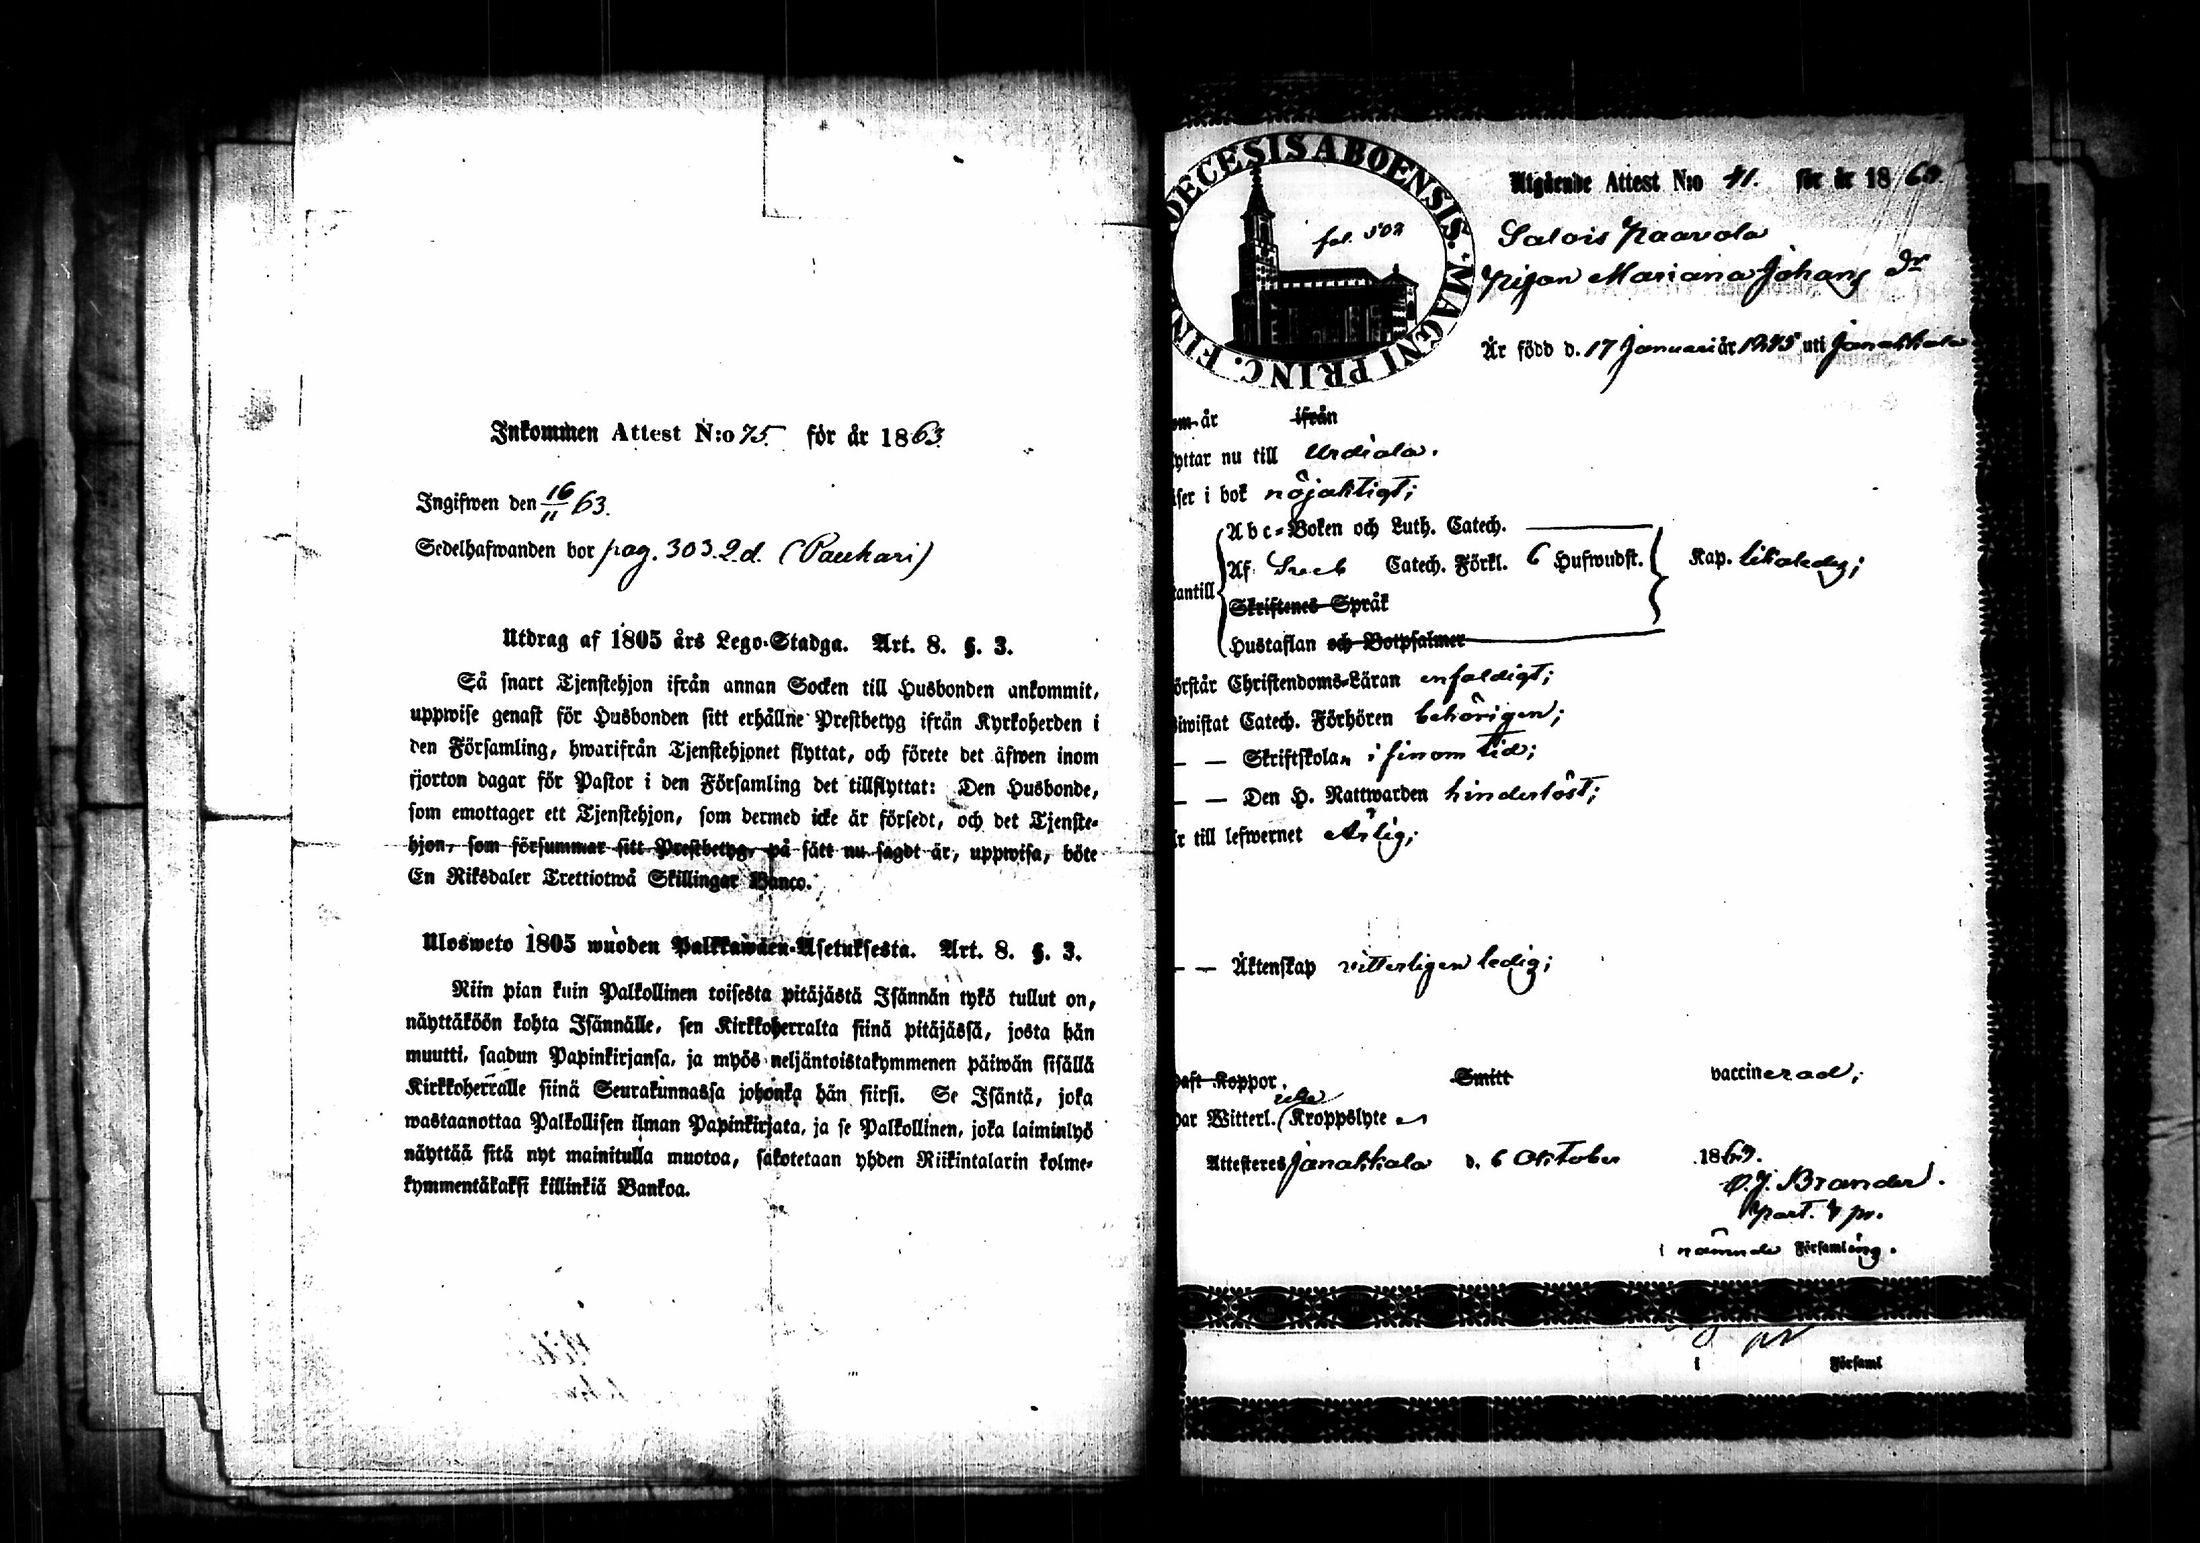 Inkommen Attest N:o 75. för år 1863.
Ingifwen den 16/11 63.
Sedelhafwanden bor pag. 303. 2.d. (Paukari)
Utdrag af 1805 års Lego-Stadga. Art. 8. §. 3.
Så snart Tjenstehjon ifrån annan Socken till Husbonden ankommit,
uppwise genast för Husbonden sitt erhållne Prestbetyg ifrån Kyrkoherden i
den Församling, hwarifrån Tjenstehjonet flyttat, och förete det äfwen inom
fjorton dagar för Pastor i den Församling det tillflyttat: Den Husbonde,
som emottager ett Tjenstehjon, som dermed icke är försedt, och det Tjenste-
hjon, som försummar sitt Prestbetyg, på sätt nu sagdt är, uppwisa, böte
En Riksdaler Trettiotwå Skillingar Banco.
Ulosweto 1805 wuoden Palkkawäen-Asetuksesta. Art. 8. §. 3.
Niin pian kuin Palkollinen toisesta pitäjästä Isännän tykö tullut on,
näyttäköön kohta Isännälle, sen Kirkkoherralta siinä pitäjässä, josta hän
muutti, saadun Papinkirjansa, ja myös neljäntoistakymmenen päiwän sisällä
Kirkkoherralle siinä Seurakunnassa johonka hän siirsi. Se Isäntä, joka
wastaanottaa Palkollisen ilman Papinkirjata, ja se Palkollinen, joka laiminlyö
näyttää sitä nyt mainitulla muotoa, sakotetaan yhden Riikintalarin kolme-
kymmentäkaksi killinkiä Bankoa.
DECESIS ABOENSIS. MAGNI PRINC. FIN
fol. 502
Utgående Attest N:o 41. för år 1863.
Salois Paavola
Pigan Mariana Johans Dr
Är född d. 17 Januari år 1845 uti Janakkala
om år ifrån
yttar nu till Urdiala.
ser i bok nöjaktigt;
Abc-Boken och Luth. Catech.
antill Af Sveb Catech. Förkl. 6 Hufwudst. Kap. likaledes;
Skriftenes Språk
Hustaflan och Botpsalmer
örstår Christendoms-Läran enfaldigt;
iwistat Catech. Förhören behörigen;
— — Skriftskolan i sinom tid;
— — Den H. Nattwarden hinderlöst;
r till lefwernet Ärlig;
— — Äktenskap vitterligen ledig;
aft Koppor, Smitt vaccinerad;
har Witterl. Kroppslyte
Attesteres Janakkala d. 6 Oktober 1863.
Brander.
i nämnde Församling.
i Församl